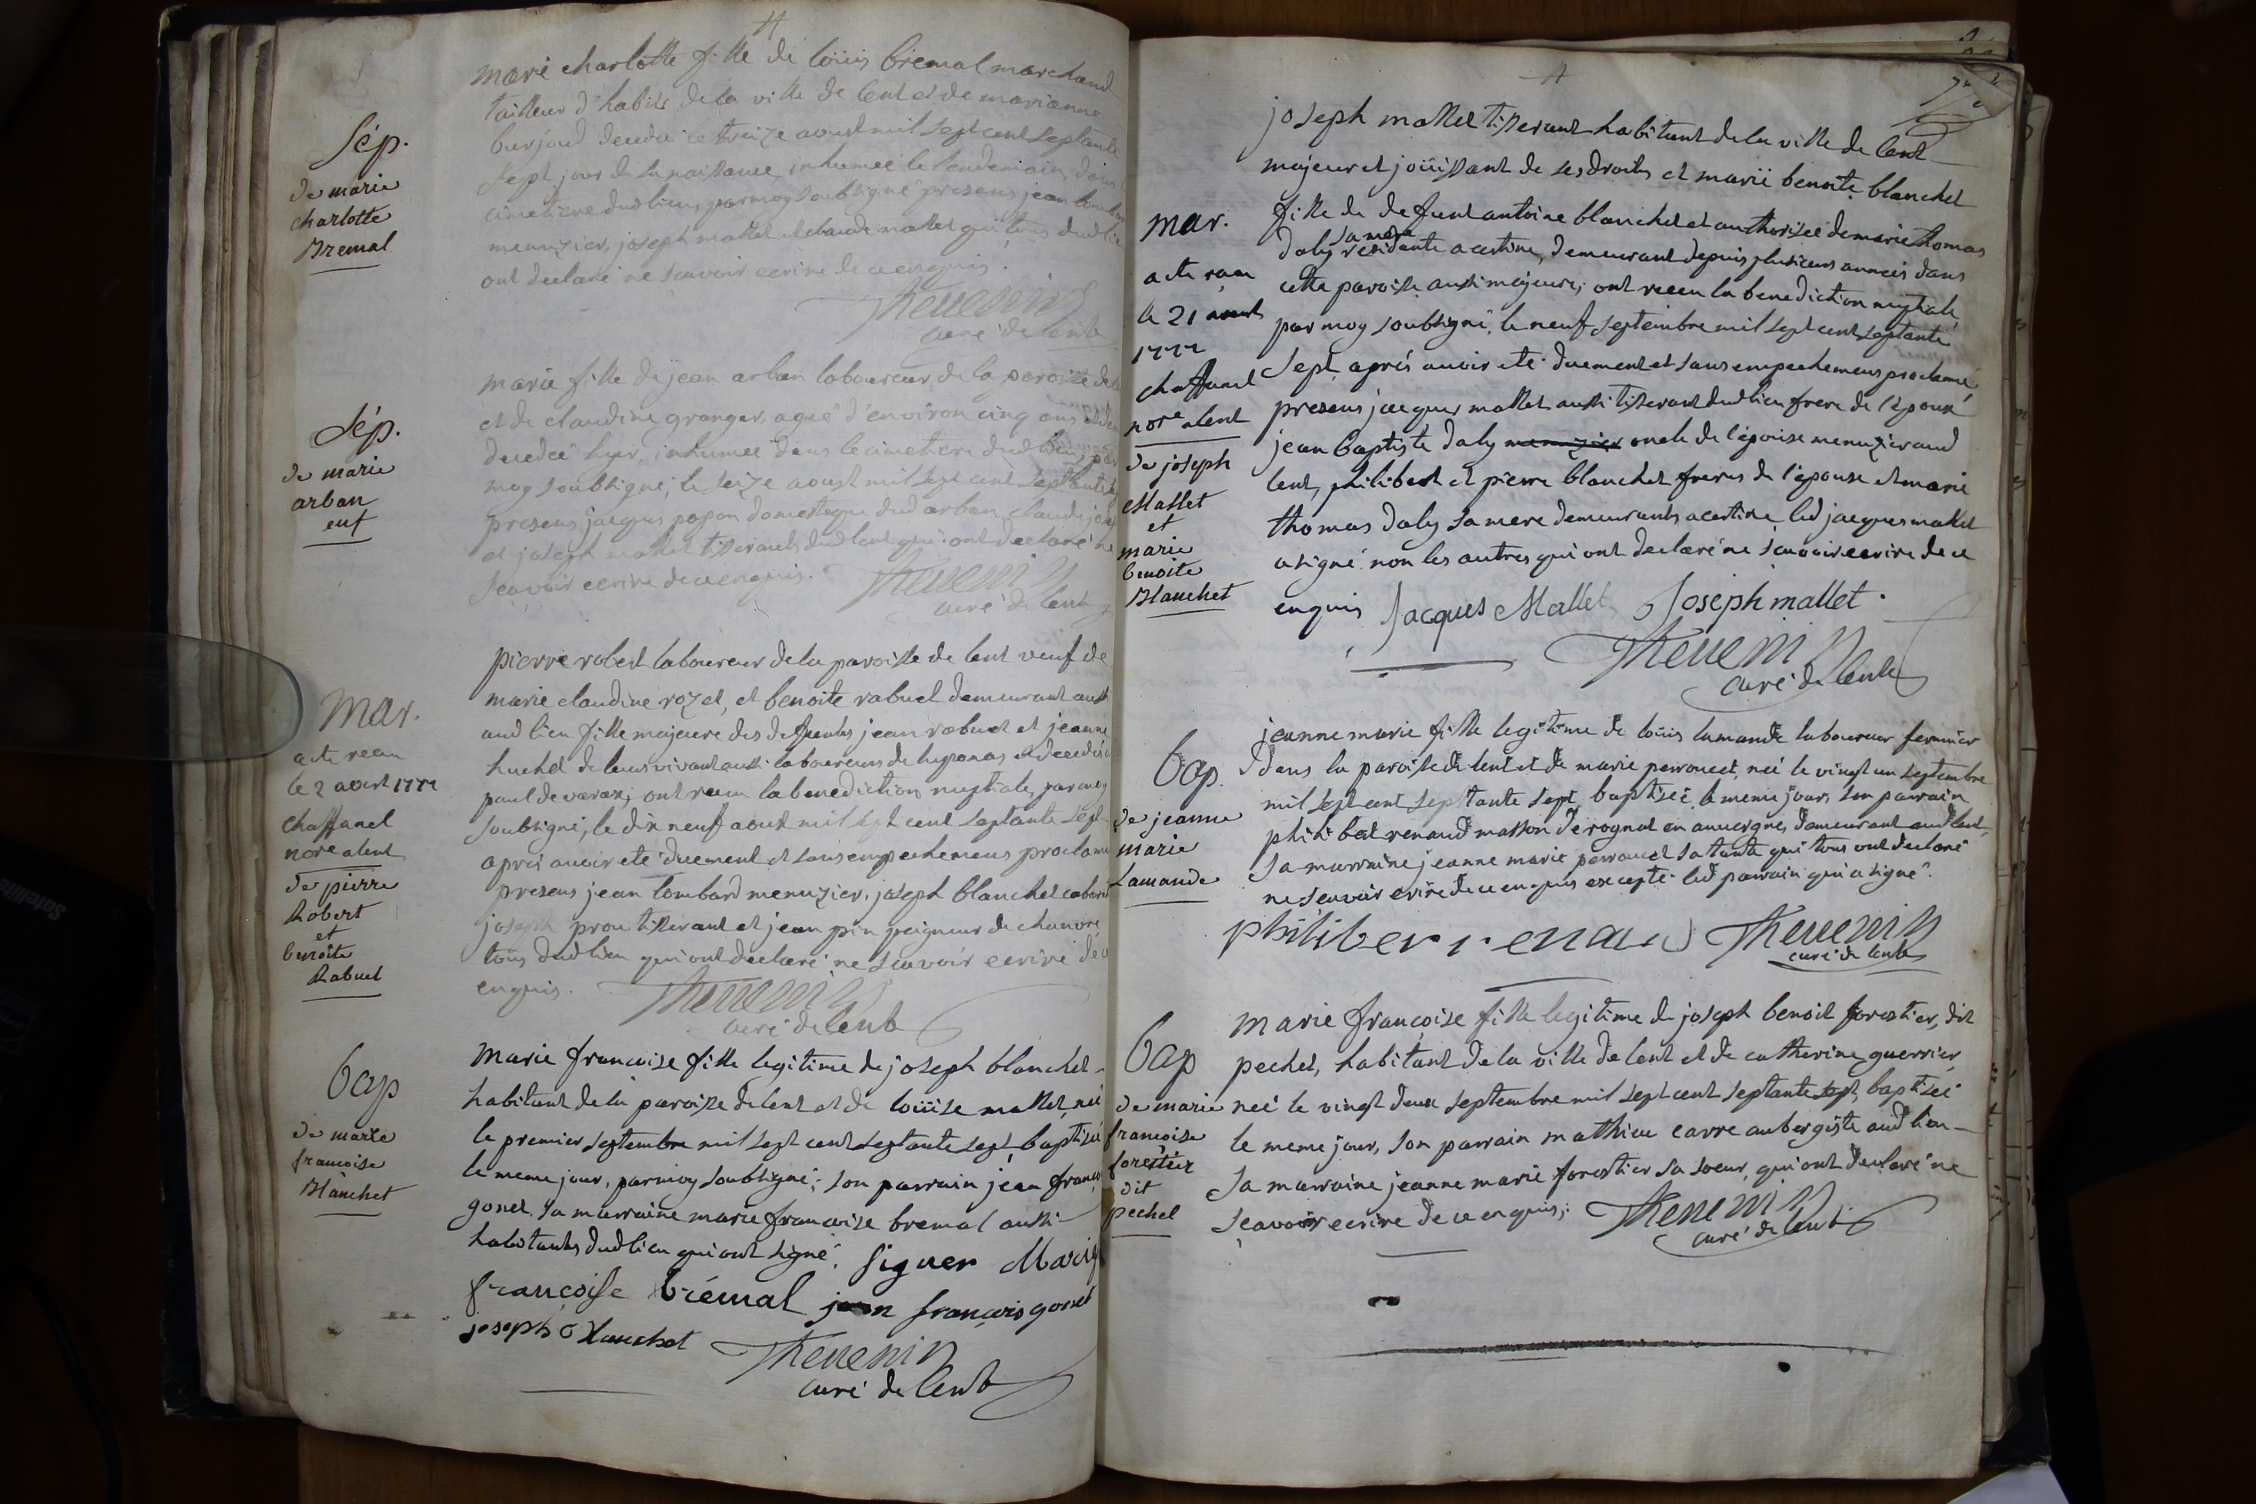 Sép.
de marie
charlotte
Bremal
marie charlotte fille de loüis bremal marchand
tailleur d'habits de la ville de lent et de marianne
burjoud decedée le treize aoust mil sept cent septante
sept jour de sa naissance, inhumée le lendemain dans
cimetiere dud lieu, par moy soubsigné presens jean tombar
menuzier, joseph mallet et claude mallet qui tous dud lie
ont declaré ne scavoir ecrire de ce enquis.
Thevenin
curé de lent
Sép.
de marie
arban
enf
marie fille de jean arban laboureur de la paroisse de
et de claudine granger, agée d'environ cinq ans
decedée hyer, inhumée dans le cimetiere dud lieu, par
moy soubsigné, le seize aoust mil sept cent septante
presens jacques popon domestique dud arban, claude
et joseph mallet tisserants dud lent qui ont declaré ne
scavoir ecrire de ce enquis.
Thevenin
curé de lent
Mar.
acte receu
le 2 aoust 1777
Chaffanel
nore a lent
de pierre
Robert
et
benoîte
Rabuel
pierre robert laboureur de la paroisse de lent veuf de
marie claudine rozet, et benoite rabuel demeurant aussi
aud lieu fille majeure des defunts jean rabuel et jeanne
huchet de leurs vivant aussi laboureurs de et decedés a
paul de varax; ont receu la benediction nuptiale, par moy
soubsigné, le dix neuf aoust mil sept cent septante sept
aprés avoir eté duement et sans empechemens proclamé
presens jean tombard menuzier, joseph blanchet
joseph prou tisserant et jean pin peigneur de chanvre
tous dud lieu qui ont declaré ne scavoir ecrire de ce
enquis.
Thevenin
curé de lent
bap
de marie
francoise
Blanchet
Marie francoise fille legitime de joseph blanchet
habitant de la paroisse de lent et de loüise mallet, neé
le premier septembre mil sept cent septante sept, baptisée
le meme jour, par moy soubsigné; son parrain jean franc
gonet, sa marraine marie francoise bremal aussi
habitants dud lieu qui ont signé. signer Marie
françoise brémal jean françois gonet
joseph blanchet
Thevenin
curé de lent
mar.
acte receu
le 21 aoust
1777
chaffanel
nore a lent
de joseph
Mallet
et
marie
benoite
Blanchet
joseph mallet tisserant habitant de la ville de lent
majeur et joüissant de ses droits et marië benoîte blanchet
fille de defunt antoine blanchet et authorisée de marie thomas
daly sa mere residante a certine, demeurant depuis plusieurs années dans
cette paroisse aussi majeure; ont receu la benediction nuptiale
par moy soubsigné, le neuf septembre mil sept cent septante
sept, aprés avoir eté duement et sans empechemens proclamé
presens jacques mallet aussi tisserant dud lieu frere de l'époux
jean baptiste daly menuzier oncle de l'épouse menuzier aud
lent, philibert et pierre blanchet freres de l'épouse et marie
thomas daly sa mere demeurants a certine led jacques mallet
a signé non les autres qui ont declaré ne scavoir ecrire de ce
enquis Jacques Mallet Joseph mallet.
Thevenin
curé de lent
bap.
de jeanne
marie
Lamande
jeanne marie fille legitime de loüis lamande laboureur fermier
dans la paroisse de lent et de marie perroucet, neé le vingt un septembre
mil sept cent septante sept, baptisée le meme jour, son parrain
philibert renaud masson de rognat en auvergne, demeurant aud lent,
sa marraine jeanne marie perroucet sa tante qui tous ont declaré
ne scavoir ecrire de ce enquis excepté led parrain qui a signé.
philiber renaud Thevenin
curé de lent
bap
de marie
francoise
forestier
dit
pechet
Marie françoise fille legitime de joseph benoit forestier, dit
pechet, habitant de la ville de lent et de catherine guerrier,
neé le vingt deux septembre mil sept cent septante sept, baptisée
le meme jour, son parrain mathieu carre aubergiste aud lieu
sa marraine jeanne marie forestier sa soeur, qui ont declaré ne
scavoir ecrire de ce enquis;
Thevenin
curé de lent